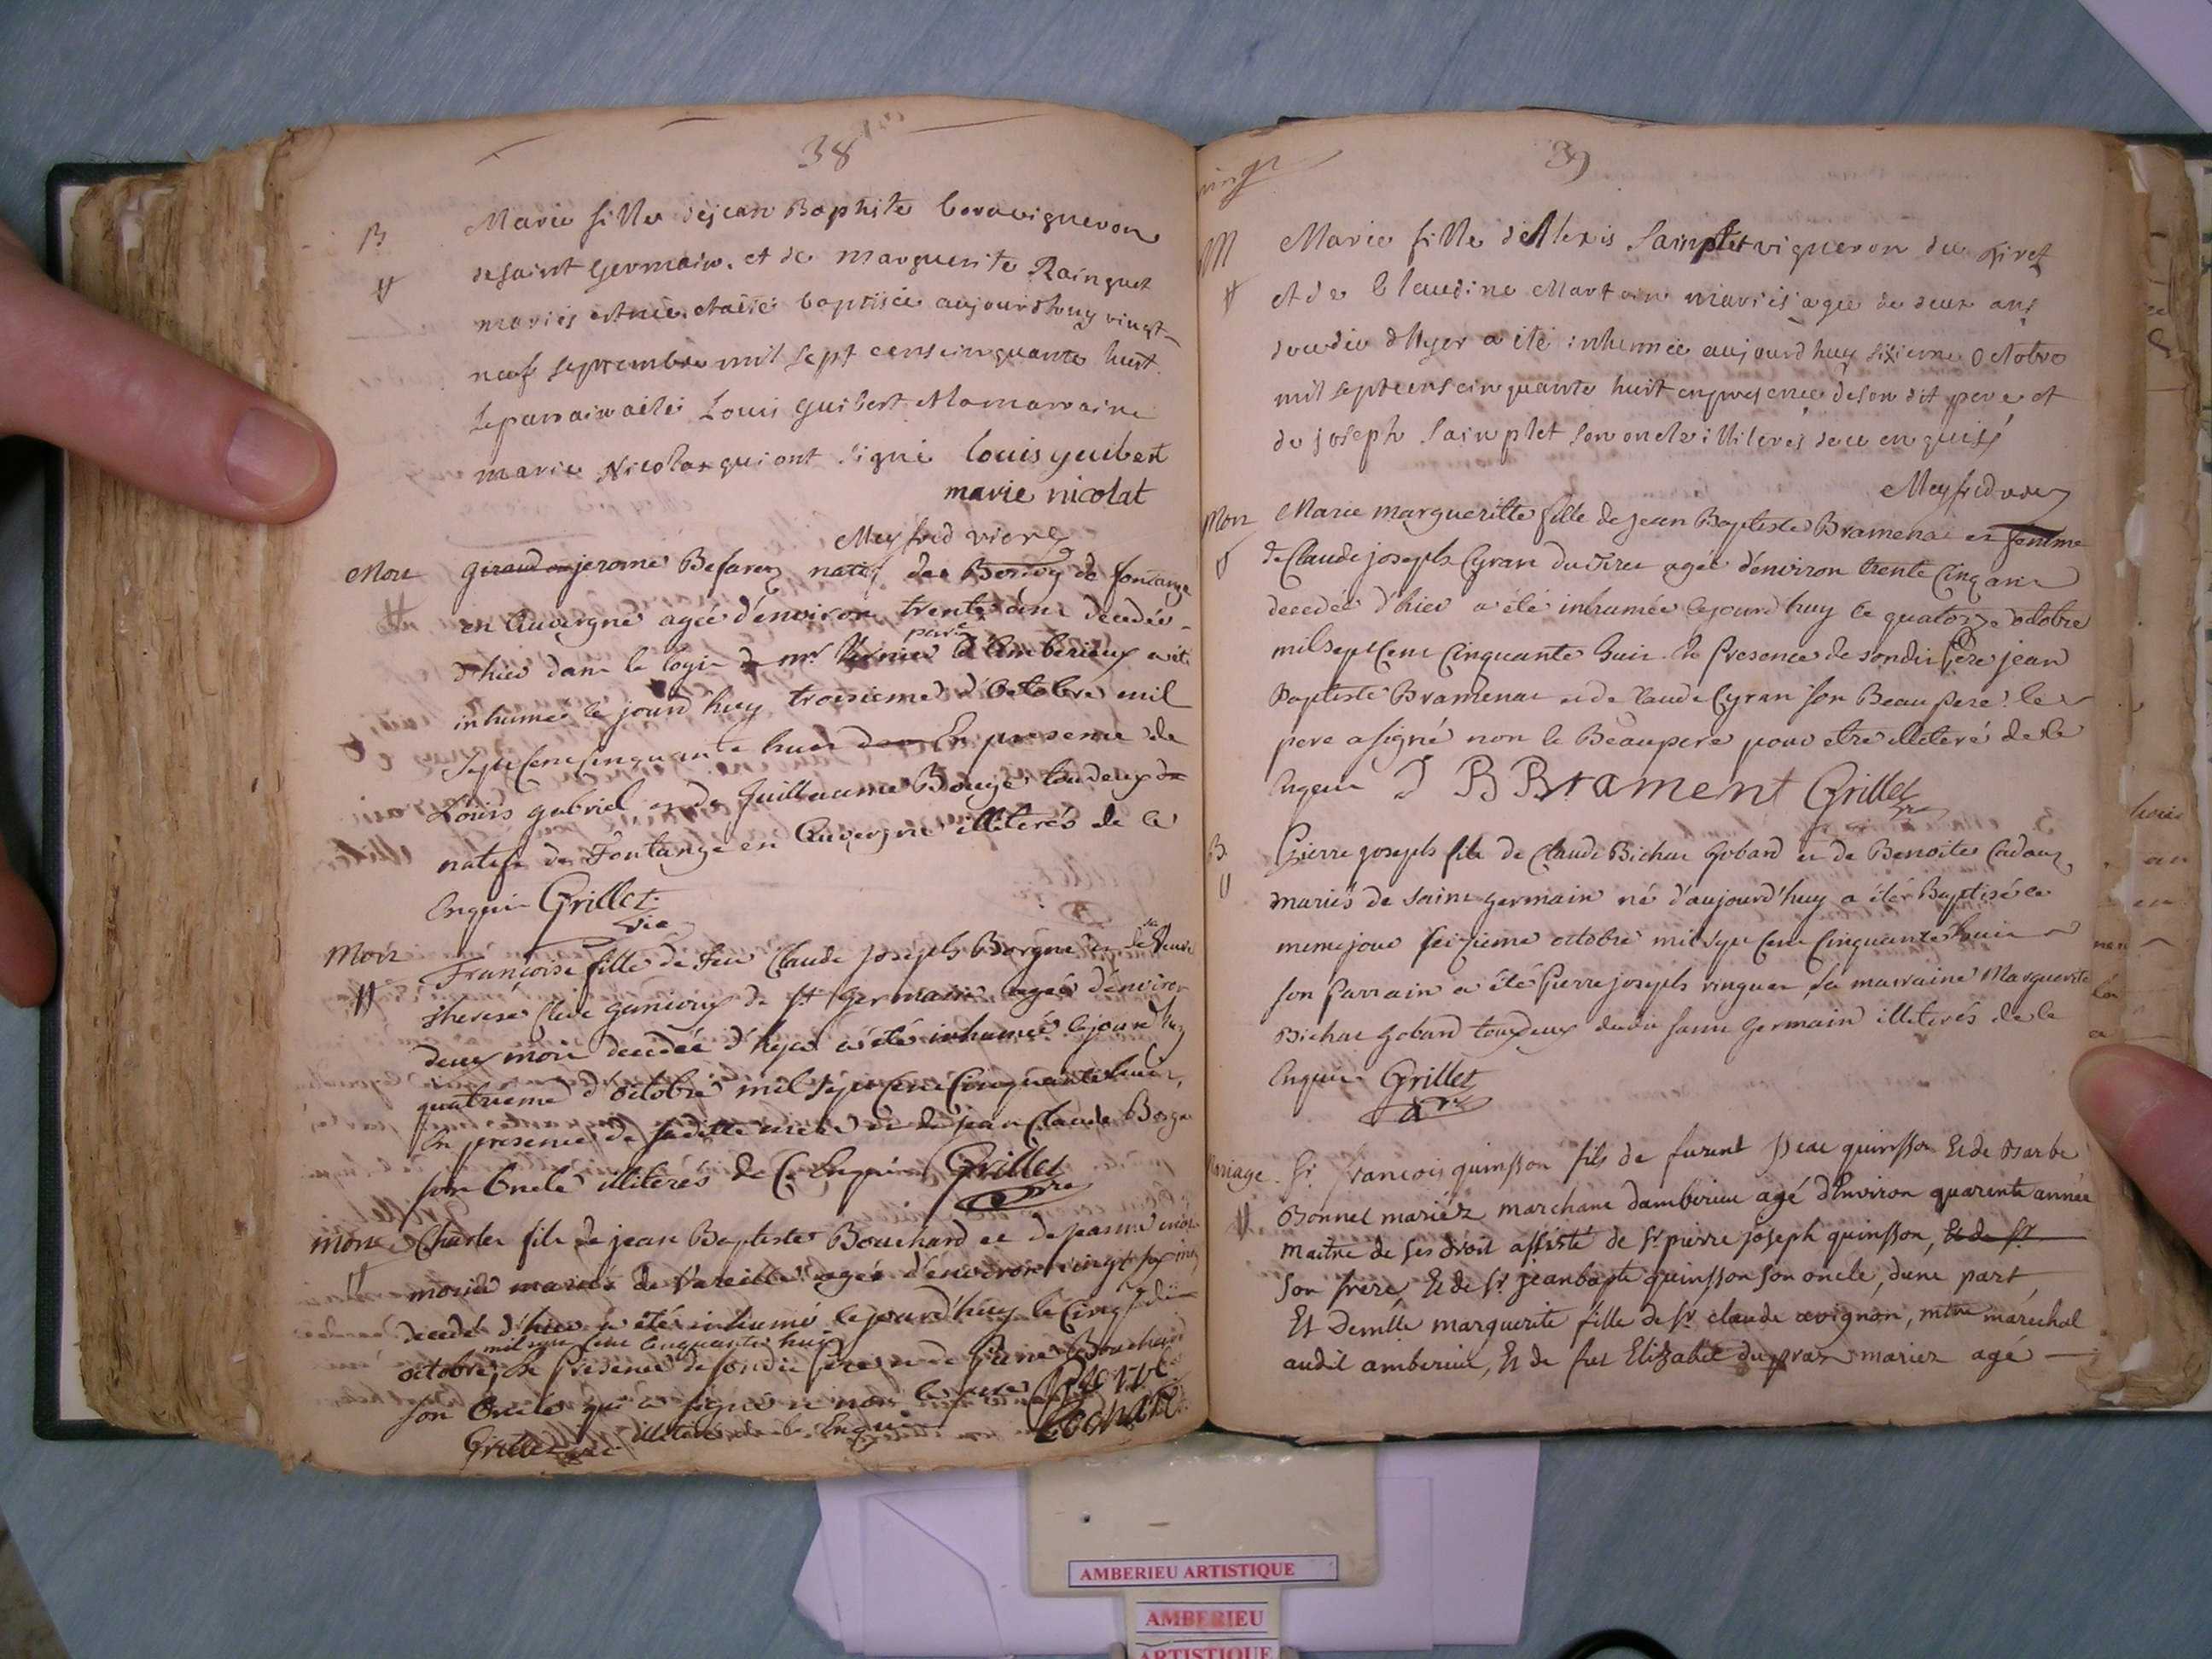 38
B
Marie fille de jean Baptiste vigneron
de saint Germain. et de marguerite Rainguet
mariés est née et aété baptisée aujourdhuy vingt
neuf septembre mil sept cens cinquante huit.
le parrain aété Louis guibert et la marraine
marie Nicolas qui ont signé louis guibert
marie nicolat
Meyfred vicre
Mort
giraud ou jerome natif de fontange
en Auvergne agée d'environ trente ans decedée
d'hier dans le logis de mr paris d'Amberieux a été
inhumé le jourd'huy troisieme d'Octobre mil
sept cent cinquante huit En presence de
Louis gabriel et de Guillaume Bouge toudeux
natifs de Fontange en Auvergne illiterés de ce
Enquis Grillet
vic
Mort
Françoise fille de feu Claude joseph Borgne et de sa veuve
therese de st germain agée d'environ
deux mois decedée d'hyer a été inhumée lejourdhuy
quatrieme d'octobre mil sept cent Cinquante huit,
En presence de saditte mere et de jean Claude Borgne
son Oncle illiterés de ce Enquis Grillet
vre
Mort
Charles fils de jean Baptiste Bouchard et de jeanne
mariés de Vareille agé d'environ vingt
decedé d'hier a été inhumé lejourd'huy le cinq
mil sept cent Cinquante huit
octobre, En Presence de sondit pere et de Pierre Bouchard
son Oncle qui a signé et non le pere
illiteré de ce Enquis
Grillet vic
39
M
Marie fille d'Alexis Sainplet vigneron du Tiret
et de Claudine Marton mariés agée de deux ans
decedée d'hyer a été inhumée aujourd'huy sixieme Octobre
mil sept cens cinquante huit en presence de son dit pere et
de joseph Sainplet son oncle illiteres de ce enquis
Meyfred vicre
Mort
Marie marguerite fille de jean Baptiste Bramena et femme
de Claude joseph Cyran du Tiret agée d'environ trente Cinq ans
decedée d'hier a été inhumée lejourdhuy le quatorze octobre
mil sept Cent Cinquante huit En Presence de sondit Pere jean
Baptiste Bramena et de Claude Cyran son Beau pere. le
pere a signé non le Beaupere pour etre illiteré de ce
Enquis J B Brament Grillet
B
Pierre joseph fils de Claude Bichat Gobard et de Benoite
mariés de saint germain né d'aujourd'huy a été Baptisé le
meme jour seizieme octobre mil sept Cent Cinquante huit
son Parrain a été Pierre joseph ringuet, sa marraine Marguerite
Bichat Gobard toudeux dudit saint Germain illiterés de ce
Enquis Grillet
vre
Mariage
Sr francois quinsson fils de furent sr quinsson Et de Barbe
Bonnet mariéz marchant damberieu agé d'Environ quarente année
maitre de ses droit assisté de sr pierre joseph quinsson, Et de sr
son frere, Et de sr jean bapte quinsson son oncle, dune part,
Et Demlle marguerite fille de sr claude avignon, mtre maréchal
audit amberieu, Et de fut Elizabet dupraz mariez agé
AMBERIEU ARTISTIQUE
AMBERIEU
ARTISTIQUE